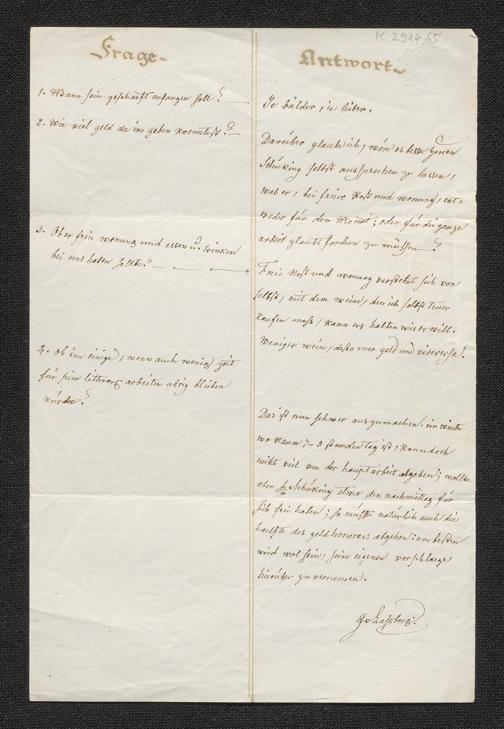 K 2914,65
Frage.
Antwort.
1. Wann sein geschaeft anfangen soll?
2. Wie viel geld du im geben koenntest?
3. Ob er freie wonung und essen u: trinken
bei uns haben sollte?
4. Ob im einige, wenn auch wenig zeit
für seine litterar: arbeiten übrig bleiben
würde?
Je bälder, je lieber.
Darüber glaube ich, wäre es besser Herren
Schücking selbst aussprechen zu lassen,
was er, bei freier kost und wonung, ent-
weder für den Monat; oder für die ganze
arbeit glaubt fordern zu müssen?
Freie kost und wonung verstehet sich von
selbst, mit dem weine, den ich selbst teuer
kaufen muss, kann es halten wie er will.
Weniger wein, desto mer geld und viceversa.
Das ist nun schwer auszumachen. im winter
wo kaum 7-8 stunden tag ist, kann doch
nicht viel von der hauptarbeit abgehen; wollte
aber Hr Schücking etwa den nachmittag für
sich frei haben; so müsste natürlich auch die
haelfte des geldhonorars abgehen: am besten
wird wol sein, seine eigenen vorschlaege
hierüber zu vernemen.
JvLassberg.